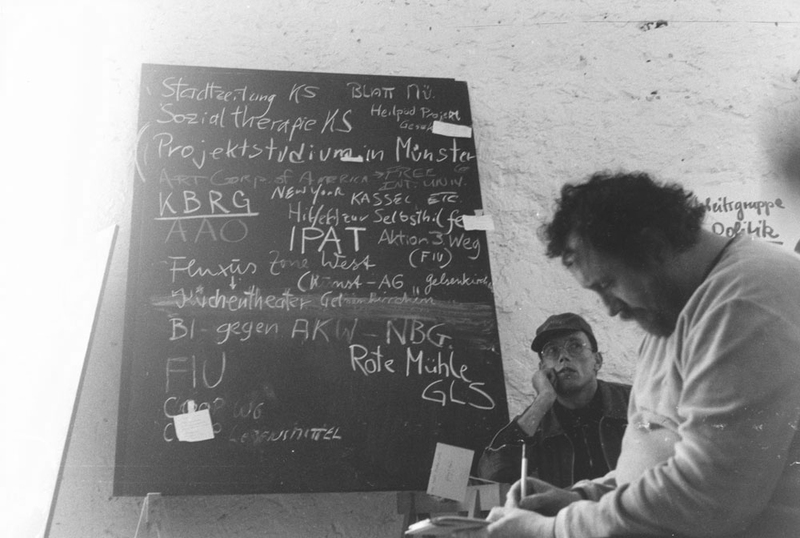 Stadtzeitung KS BLATT MÜ.
Sozialtherapie KS Heilpäd Projekt
Projektstudium in Münster
ART Corp. of America → FREE
NEW YORK KASSEL ETC. INT. UNIV.
KBRG Hilfe(n) zur Selbsthilfe
AAO IPAT Aktion 3. Weg
(FIU)
Fluxus Zone West
(Kunst-AG Gelsenkirch
Küchentheater Gelsenkirchen"
BI-gegen AKW-NBG.
Rote Mühle
FIU
GLS
WG
LEBENSMITTEL
Arbeitsgruppe
Politik